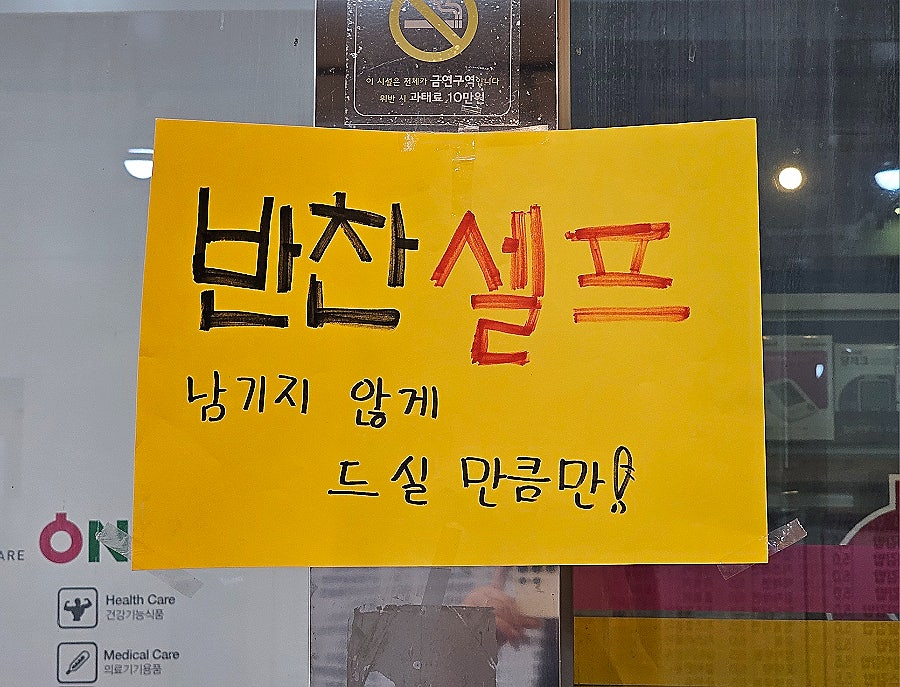 이 시설은 전체가 금연구역입니다
위반 시 과태료 10만원
반찬 셀프
남기지 않게
드실 만큼만!
ARE ON
Health Care
건강기능식품
Medical Care
의료기기용품